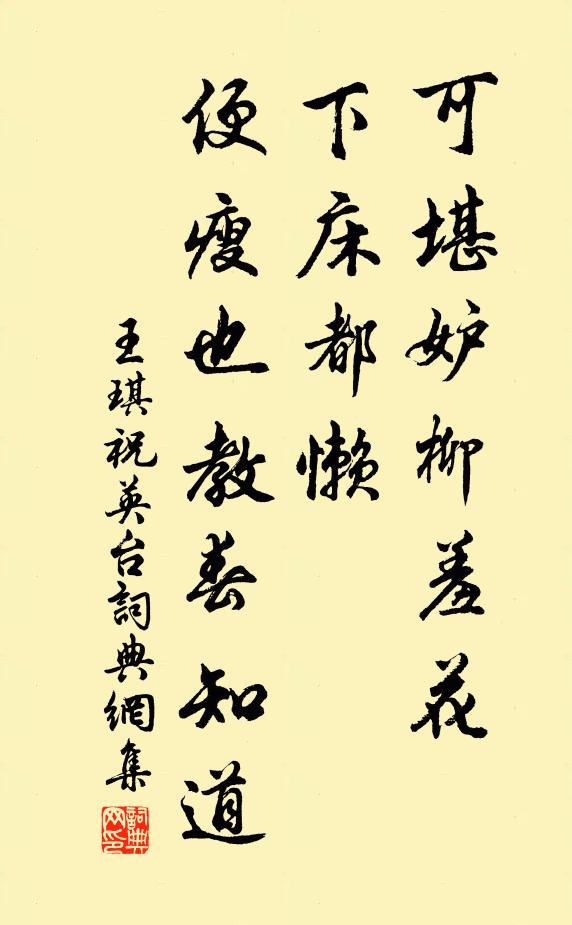 可堪妒柳羞花
下床都懒
便瘦也教春知道
王琪祝英台詞典網集
詞典
网印